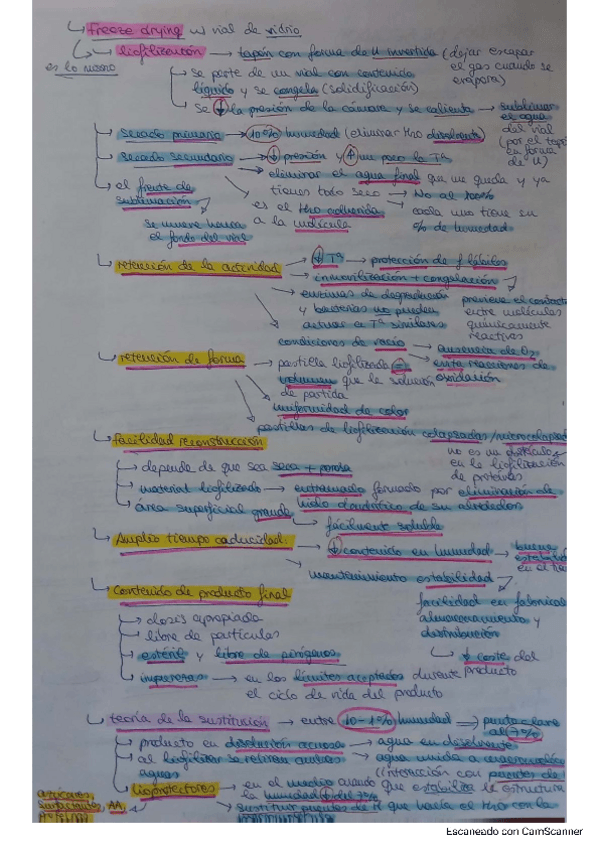 ↳ Freeze drying w vial de vidrio
↳ liofilización → tapón con forma de U invertida (dejar escapar
es lo mismo
el gas cuando se
evapora)
↳ se parte de un vial con contenido
líquido y se congela (solidificación)
↳ se ↓ la presión de la cámara y se calienta → sublimar
el agua
del vial
(por el tapón
en forma
de U)
↳ secado primario → 10% humedad (eliminar H2O disolvente)
↳ secado secundario → ↓ presión y ↑ un poco la Tª
→ eliminar el agua final que me queda y ya
tienes todo seco → No al 100%
→ cada uno tiene su
% de humedad
es el H2O adherida
a la molécula
↳ el frente de
sublimación
se mueve hacia
el fondo del vial
↳ retención de la actividad → ↓ Tª → protección de f lábiles
→ inmovilización + congelación
→ enzimas de degradación
y bacterias no pueden
actuar a Tª similares
previene el contacto
entre moléculas
químicamente
reactivas
condiciones de vacío → ausencia de O2
→ evita reacciones de
oxidación
↳ retención de forma → pastilla liofilizada =
volumen que la solución
de partida
uniformidad de color
pastillas de liofilización colapsadas/microcolapsadas
no es un
en la liofilización
de proteínas
↳ facilidad reconstrucción
↳ depende de que sea seca + porosa
↳ material liofilizado → entramado formado por eliminación de
hielo dendrítico de su alrededor
↳ área superficial grande
↳ fácilmente soluble
↳ Amplio tiempo caducidad: → ↓ contenido en humedad → buena
en el
→ mantenimiento estabilidad
facilidad en
almacenamiento y
distribución
↳ ↓ coste del
producto
↳ Contenido de producto final
↳ dosis apropiada
↳ libre de partículas
↳ estéril y libre de pirógenos
↳ impurezas → en los límites aceptados durante
el ciclo de vida del producto
↳ teoría de la sustitución → entre 10-1% humedad → punto clave
al 7%
↳ producto en disolución acuosa → agua en disolvente
↳ al liofilizar se retiran ambas
aguas
→ agua unida a
(interacción con puentes de
↳ lioprotectores → en el medio cuando que estabiliza la estructura
la humedad ↓ del 7%
→ sustituir puentes de H que hacía el H2O con la
azúcares,
surfactantes, AA,